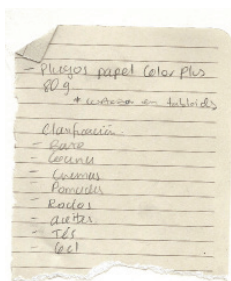 - Pliegos papel Color Plus
80 g
+ en tabloides
Clasificación.
- Cocina
- Cremas
- Pomadas
- Rodos
- aceites
- Tés
- Gel